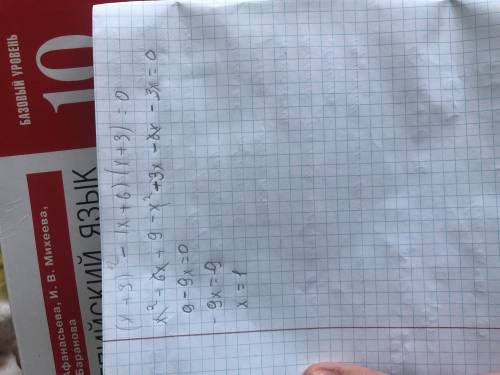 (x+3)² - (x+6)(x+3) = 0
x² + 6x + 9 - x² + 3x - 6x - 3x = 0
9 - 9x = 0
- 9x = -9
x = 1
БАЗОВЫЙ УРОВЕНЬ
10
Афанасьева, И. В. Михеева,
Баранова
ИЙСКИЙ ЯЗЫК